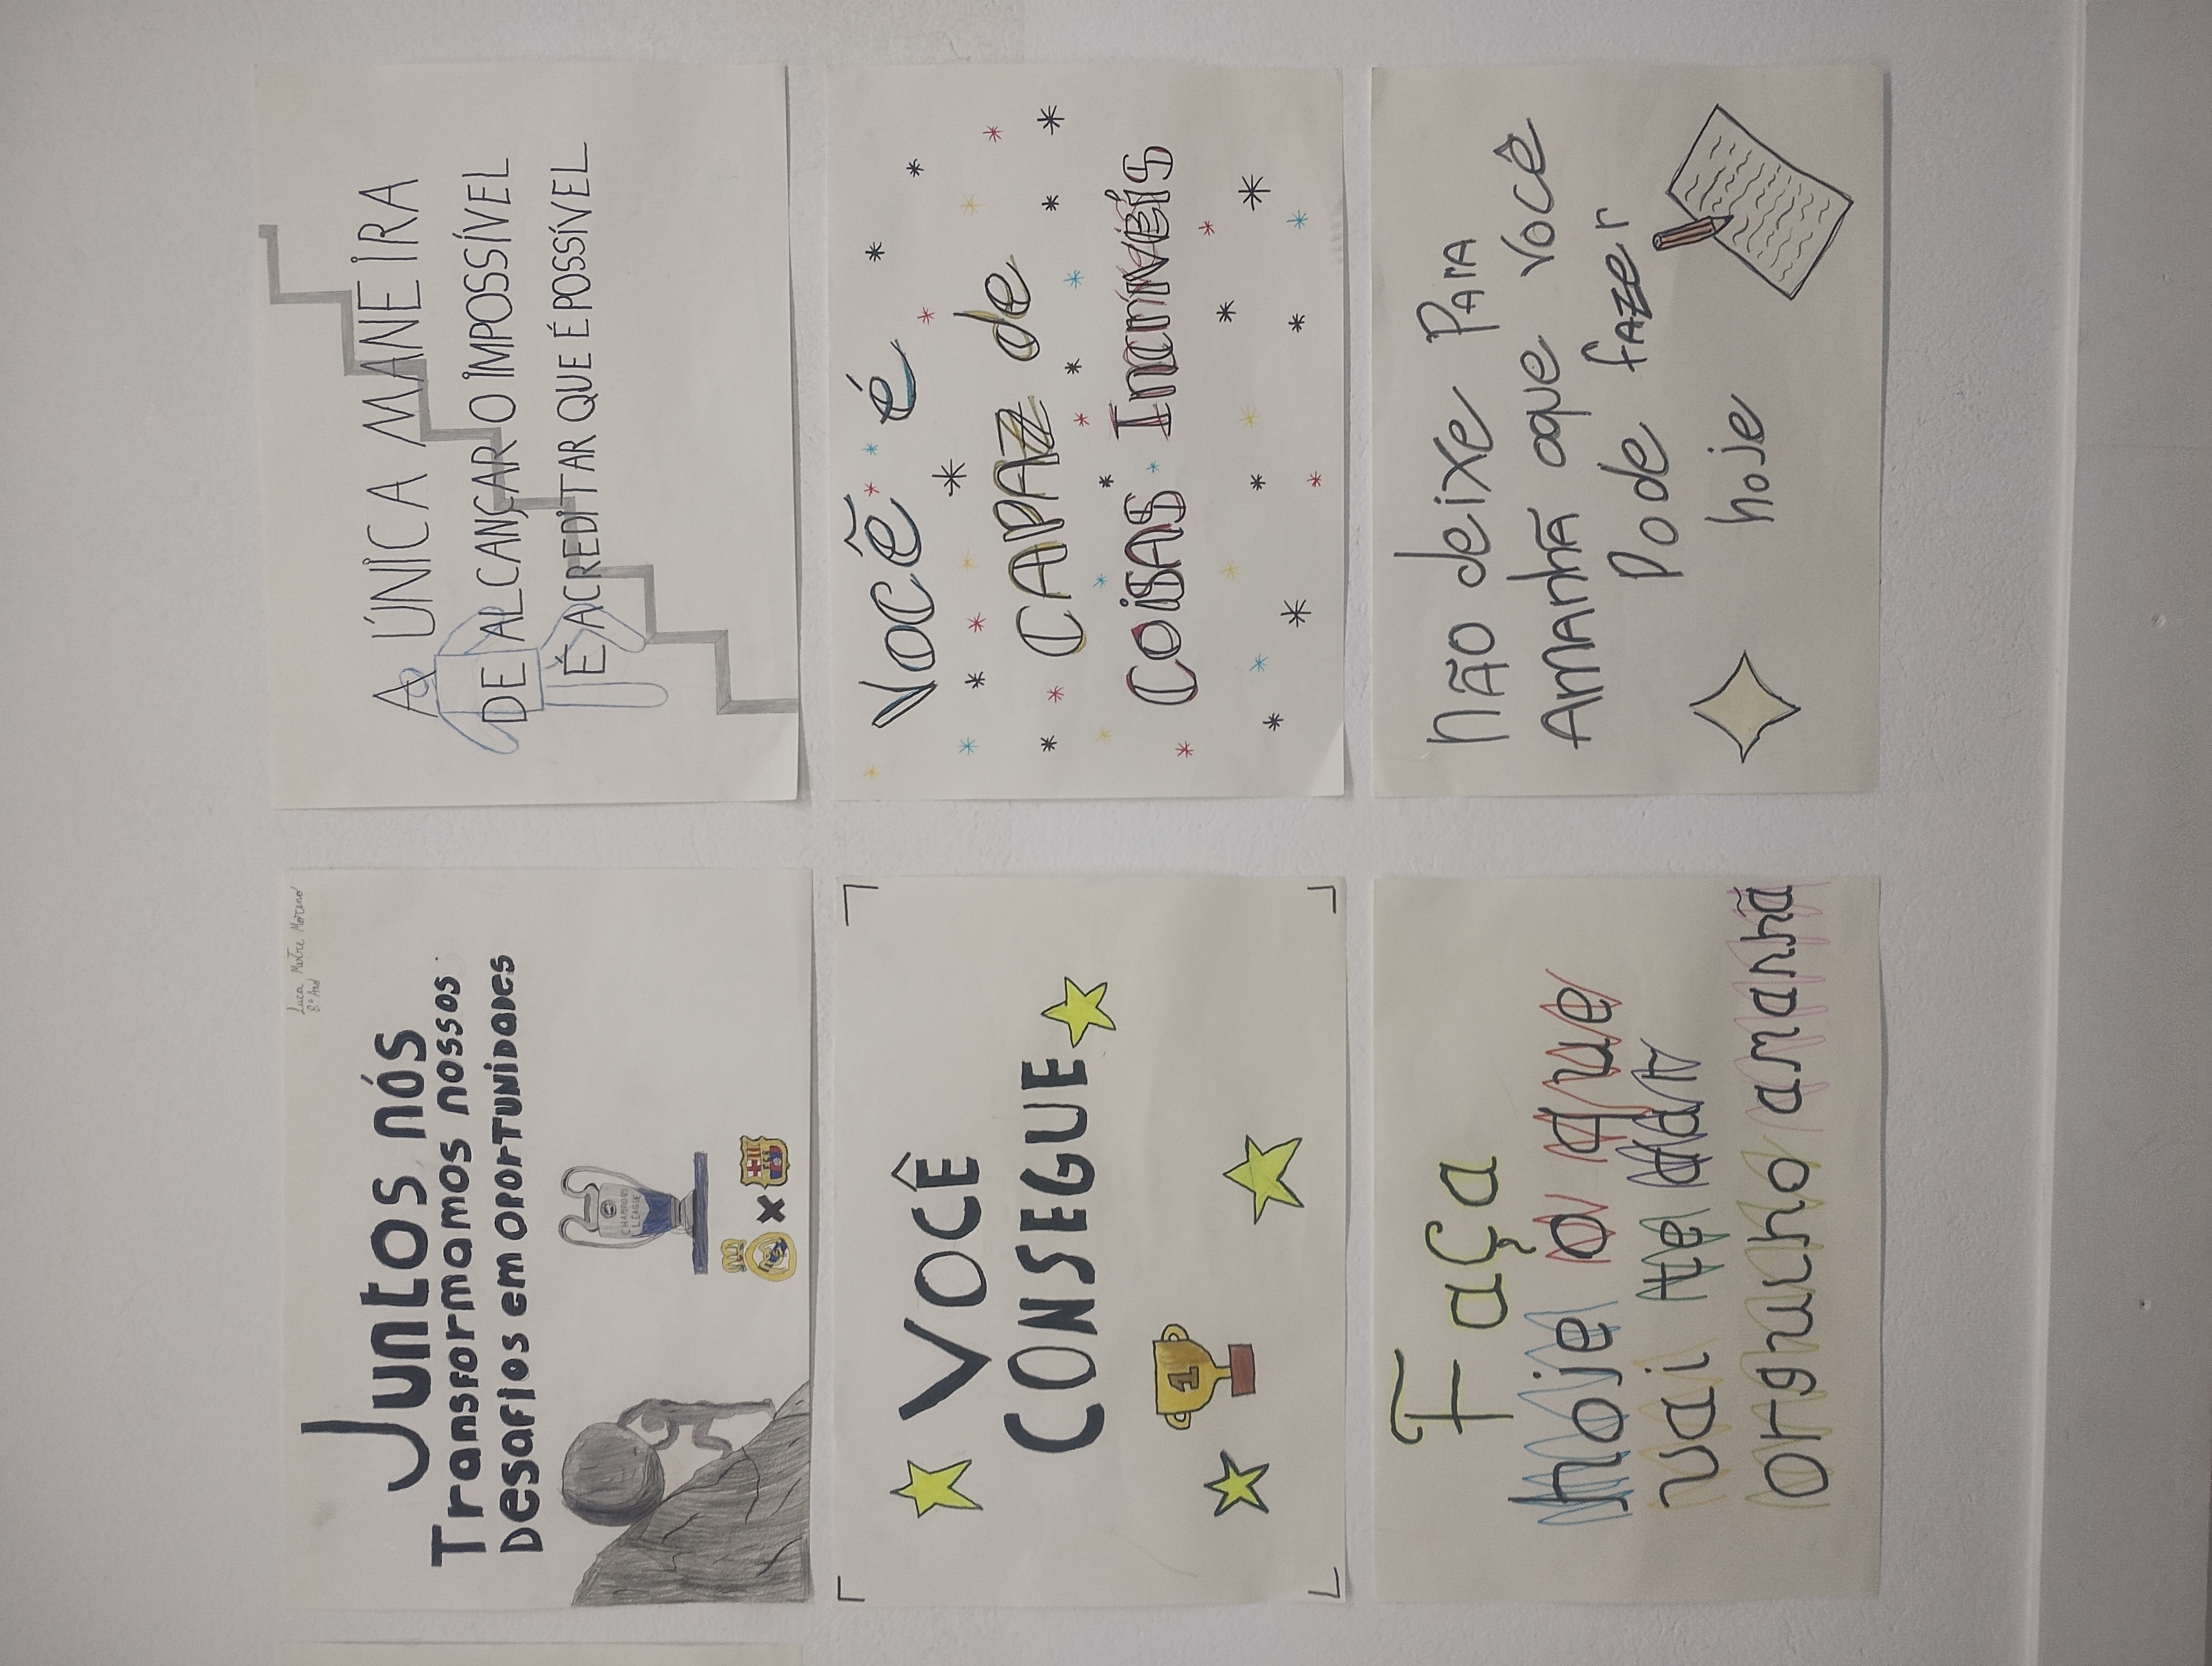 Luca Mestre Moreno
8º Ano
Juntos nós
Transformamos nossos
Desafios em oportunidades
CHAMPIONS
LEAGUE
X
A ÚNICA MANEIRA
DE ALCANÇAR O IMPOSSÍVEL
É ACREDITAR QUE É POSSÍVEL
VOCÊ
CONSEGUE
1
Você é
CAPAZ de
Coisas Incríveis
Faça
hoje o que
vai te dar
orgulho amanhã
Não deixe Para
Amanhã oque você
Pode fazer
hoje